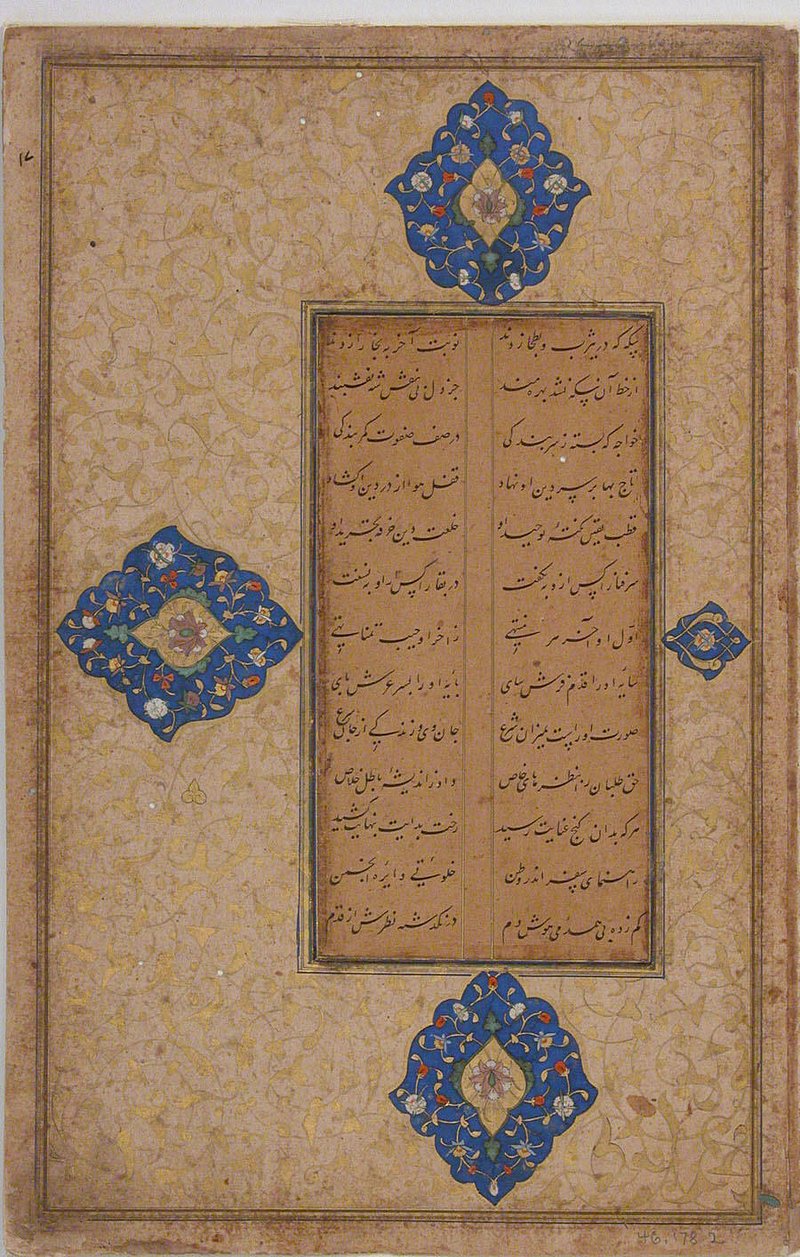 ۱۷
سکه که در یثرب و بطحا زدند نوبت آخر به بخارا زدند
از خط آن سکه نشد بهره مند جز دل بی نقش شه نقشبند
خواجه که بسته ز سر بندگی در صف صفوت کمر بندگی
تاج بها بر سر دین او نهاد قفل هوا از در دین او گشاد
قطب یقین نکتهٔ توحید او خلعت دین خرقه تجرید او
سر فنا را کس ازو به نگفت در بقا را کس ازو به نسفت
اول او آخر هر منتهی ز آخر او جیب تمنا تهی
سایهٔ او را قدم فرش سای پایهٔ او را بسر عرش پای
صورت او راست بمیزان شرع جان وی و زندگی از جان شرع
حق طلبان را بنظرهای خاص داد ز اندیشهٔ باطل خلاص
هرکه بدان گنج عنایت رسید رخت بدایت بنهایت کشید
راهنمای سفر اندر وطن خلوتئی دایرهٔ انجمن
کم زده بی همدمی هوش دم در نگذشته نظرش از قدم
46.178 2